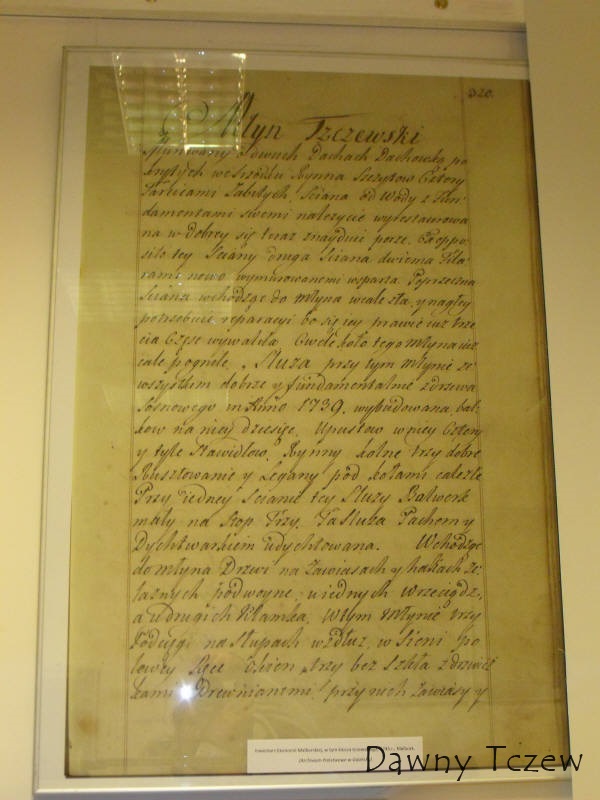 320.
Młyn Tczewski
o dwuch Dachach Dachowką po
krytych
Tarlicami zabitych, Sciana od Wody z Fun-
damentami swemi nalezycie wyrestaurowa
na w Dobrey się teraz znayduie porze. Na oppo
sito tey Sciany druga Sciana dwiema Fila
rami nowo wymurowanemi wsparta. Poprzeczna
Sciana wchodząc do Młyna wcale zła, y nagłey
potrzebuie reparacyi bo się iey prawie iuz trze
cia Częsc wywaliła. Cwele koło tego Młyna iuz
całe pogniłe. Sluza przy tym Młynie ze
wszystkim dobrze y fundamentalnie z drzewa
Sosnowego in Anno 1739. wybudowana, bal-
kow na niey dziesięc. Upustow w niey Cztery
y tyle Stawidłow. Rynny kolne trzy dobre
Rusztowanie y Legary pod kołami całe zle
Przy iedney Scianie tey Sluzy Bolwerk
mały na Stop Trzy. Ta Sluza
udychtowana. Wchodząc
do Młyna Drzwi na Zawiasach y hakach ze-
laznych podwoyne, u iednych wrzeciądz,
a u drugich Klamka. W tym Młynie trzy
na Słupach wzdłuz, w Sieni po
lewey Ręce Okien trzy bez Szkła z drzwicz
kami Drewnianemi, przy nich Zawiasy y
(Archiwum Państwowe w Gdańsku)
Dawny Tczew